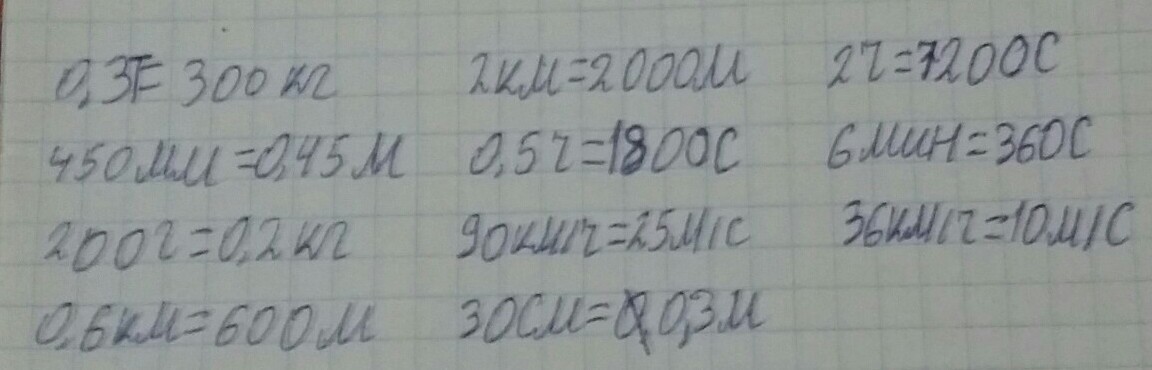 0,3т= 300кг 2км=2000м 2ч=7200с
450мм=0,45м 0,5ч=1800с 6мин=360с
200г=0,2кг 90км/ч=25м/с 36км/ч=10м/с
0,6км=600м 30см=0,3м